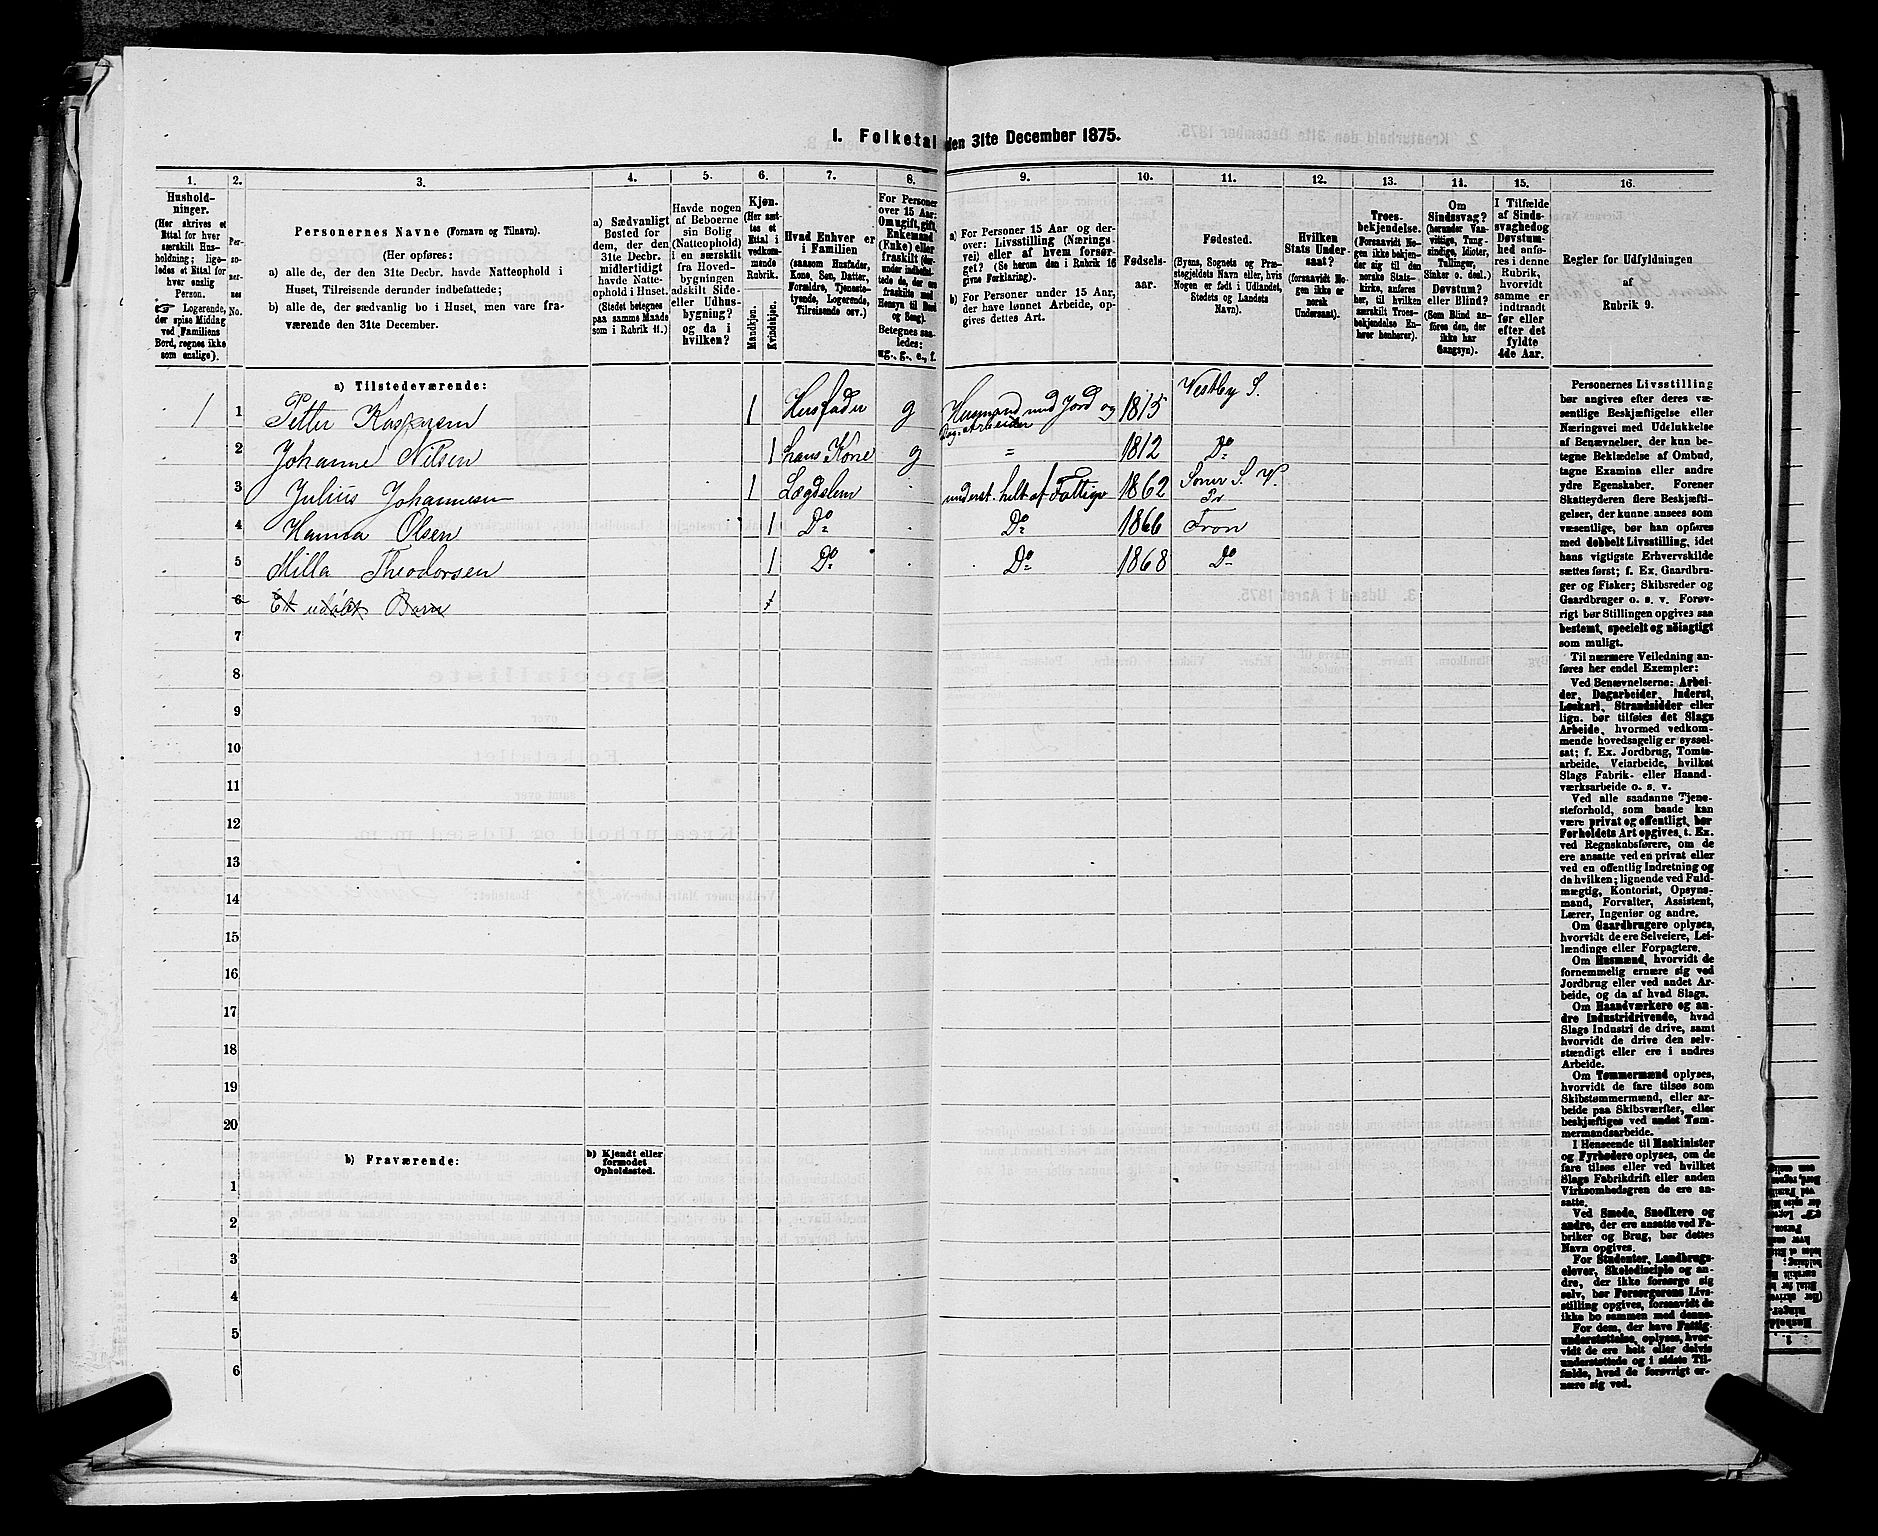 1. Folketal den 31te December 1875.
1. 2. 3. 4. 5. 6. 7. 8. 9. 10. 11. 12. 13. 14. 15. 16.
Hushold-
ninger.
(Her skrives et
Ettal for hver
særskilt Hus-
holdning; lige-
ledes et Ettal for
hver enslig
Person.
☞ Logerende,
der spise Middag
ved Familiens
Bord, regnes ikke
som enslige).
Per-
so-
ner-
nes
No.
Personernes Navne (Fornavn og Tilnavn).
(Her opføres:
a) alle de, der den 31te Decbr. havde Natteophold i
Huset, Tilreisende derunder indbefattede;
b) alle de, der sædvanlig bo i Huset, men vare fra-
værende den 31te December.
a) Sædvanligt
Bosted for
dem, der den
31te Decbr.
midlertidigt
havde Natte-
ophold i Huset.
(Stedet betegnes
paa samme Maade
som i Rubrik 11.)
Havde nogen
af Beboerne
sin Bolig
(Natteophold)
i en særskilt
fra Hoved-
bygningen
adskilt Side-
eller Udhus-
bygning?
og da i
hvilken?
Kjøn.
(Her sæt-
tes et
Ettal i
vedkom-
mende
Rubrik.
Mandkjøn.
Kvindekjøn.
Hvad Enhver er
i Familien
(saasom Husfader,
Kone, Søn, Datter,
Forældre, Tjeneste-
tyende, Logerende,
Tilreisende osv.)
For Personer
over 15 Aar:
Om ugift, gift,
Enkemand
(Enke) eller
fraskilt (der-
under indbefat-
tede de, der ere
fraskilte med
Hensyn til Bord
og Seng).
Betegnes saa-
ledes:
ug., g., e., f.
a) For Personer 15 Aar og der-
over: Livsstilling (Nærings-
vei) eller af hvem forsør-
get? (Se herom den i Rubrik 16
givne Forklaring).
b) For Personer under 15 Aar,
der have lønnet Arbeide, op-
gives dettes Art.
Fødsels-
aar.
Fødested.
(Byens, Sognets og Præ-
stegjeldets Navn eller, hvis
Nogen er født i Udlandet,
Stedets og Landets
Navn).
Hvilken
Stats Under-
saat?
(forsaavidt No-
gen ikke er
norsk
Undersaat).
Troes-
bekjendelse.
(Forsaavidt No-
gen ikke bekjen-
der sig til den
norske Stats-
kirke, anføres
her, til hvilken
særskilt Troes-
bekjendelse En-
hver henhører).
Om
Sindssvag?
(herunder Van-
vittige, Tung-
sindige, Idioter,
Tullinger,
Sinker o. desl.)
Døvstum?
eller Blind?
(Som Blind an-
føres den, der
ikke har
Gangsyn).
I Tilfælde
af Sinds-
svaghed og
Døvstum-
hed anfø-
res i denne
Rubrik,
hvorvidt
samme er
indtraadt
før eller
efter det
fyldte
4de Aar.
Regler for Udfyldningen
af
Rubrik 9.
a) Tilstedeværende:
1 1 Petter Kaspersen 1 Husfader g Husmand med Jord og 1815 Vestby S.
Dag-Arbeider
2 Johanne Nilsen 1 hans Kone g = 1812 Do
3 Julius Johannesen 1 Lægdslem underst. helt af Fattigv 1862 S. V.
Pr
4 Hanna Olsen 1 Do Do 1866 Fron
5 Milla Theodorsen 1 Do Do 1868 Do
6 Et udøbt Barn 1
7
8
9
10
11
12
13
14
15
16
17
18
19
20
b) Fraværende: b) Kjendt eller
formodet
Opholdssted.
1
2
3
4
5
6
Personernes Livsstilling
bør angives efter deres væ-
sentlige Beskjæftigelse eller
Næringsvei med Udelukkelse
af Benævnelser, der kun be-
tegne Beklædelse af Ombud,
tagne Examina eller andre
ydre Egenskaber. Forener
Skatteyderen flere Beskjæfti-
gelser, der kunne ansees som
væsentlige, bør han opføres
med dobbelt Livsstilling, idet
hans vigtigste Erhvervskilde
sættes først; f. Ex. Gaardbru-
ger og Fisker; Skibsreder og
Gaardbruger o. s. v. Forøv-
rigt bør Stillingen opgives saa
bestemt, specielt og nøiagtigt
som muligt.
Til nærmere Veiledning an-
føres her endel Exempler:
Ved Benævnelserne: Arbei-
der, Dagarbeider, Inderst,
Løskarl, Strandsidder eller
lign. bør tilføies det Slags
Arbeide, hvormed vedkom-
mende hovedsagelig er syssel-
sat; f. Ex. Jordbrug, Tomte-
arbeide, Veiarbeide, hvilket
Slags Fabrik- eller Haand-
værksarbeide o. s. v.
Ved alle saadanne Tjene-
steforhold, som baade kan
være privat og offentligt, bør
Forholdets Art opgives, t. Ex.
ved Regnskabsførere, om de
ere ansatte ved en privat eller
ved en offentlig Indretning og
da hvilken; lignende ved Fuld-
mægtig, Kontorist, Opsyns-
mand, Forvalter, Assistent,
Lærer, Ingeniør og andre.
Om Gaardbrugere oplyses,
hvorvidt de ere Selveiere, Lei-
lændinge eller Forpagtere.
Om Husmænd, hvorvidt de
fornemmelig ernære sig ved
Jordbrug eller ved andet Ar-
beide, og da af hvad Slags.
Om Haandværkere og an-
dre Industridrivende, hvad
Slags Industri de drive, samt
hvorvidt de drive den selv-
stændigt eller ere i andres
Arbeide.
Om Tømmermænd oplyses,
hvorvidt de fare tilsøs som
Skibstømmermænd, eller ar-
beide paa Skibsværfter, eller
beskjæftiges ved andet Tøm-
mermandsarbeide.
I Henseende til Maskinister
og Fyrbødere oplyses, om de
fare tilsøs eller ved hvilket
Slags Fabrikdrift eller anden
Virksomhedsgren de ere an-
satte.
Ved Smede, Snedkere og
andre, der ere ansatte ved Fa-
briker og Brug, bør dettes
Navn opgives.
For Studenter, Landbrugs-
elever, Skoledisciple og an-
dre, der ikke forsørge sig
selv, bør Forsørgerens Livs-
stilling opgives, forsaavidt de
ikke bo sammen med denne.
For dem, der have Fattig-
understøttelse, oplyses, hvor-
vidt de ere helt eller delvis
understøttede og i sidste Til-
fælde, hvad de forøvrigt er-
nære sig ved.